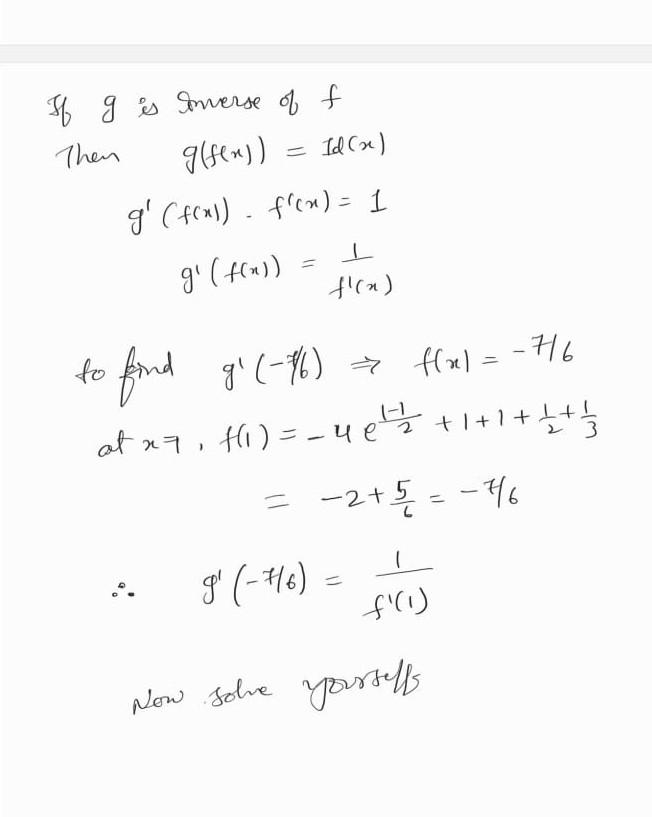 If g is Inverse of f
Then g(f(x)) = Id(x)
g'(f(x)) . f'(x) = 1
g'(f(x)) = 1/f'(x)
to find g'(-7/6) ⇒ f(x) = -7/6
at x=1, f(1) = -4 e^((1-1)/2) + 1+1+1/2+1/3
= -2+5/6 = -7/6
∴ g'(-7/6) = 1/f'(1)
Now solve yourself